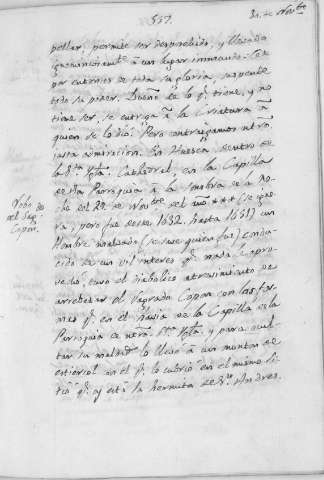 557.
30. de Nov.bre
pellar, permite ser despreciado, y llevado
à un lugar inmundo.
por entonces de toda su gloria, suspende
todo su poder. Dueño es de lo q.e tiene, y no
tiene ser, se entrega à la Criatura à
quien se lo dió. Pero contraigamos ntra
justa admiracion. En Huesca dentro de
la S.ta Igla. Cathedral, en la Capilla
de su Parroquia à la sombra de la no-
che del 29 de Nov.bre del año *** (se igno-
ra, pero fue desde 1632. hasta 1651) un
Hombre malvado (se sabe quien fue) condu-
cido de un vil interes q.e nada le apro-
vechó, tuvo el diabolico atrevimiento de
arrebatar el Sagrado Copon con las for-
mas q.e en el havia de la Capilla de la
Parroquia de ntra. S.ta Igla. y para ocul-
tar su maldad lo llevó à un monton de
estiercol en el q.e lo cubrió en el mismo si-
tio q.e oy está la hermita de S.n Andres.
Robo
del Sag.
Copon.